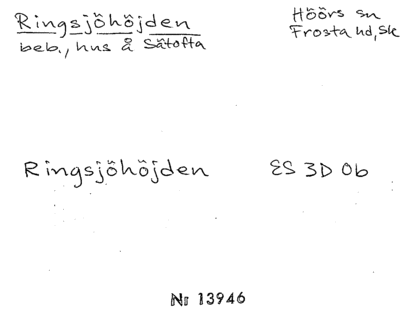 Ringsjöhöjden
beb., hus å Sätofta
Höörs sn
Frosta hd, Sk
Ringsjöhöjden ES 3D 0b
Nr 13946